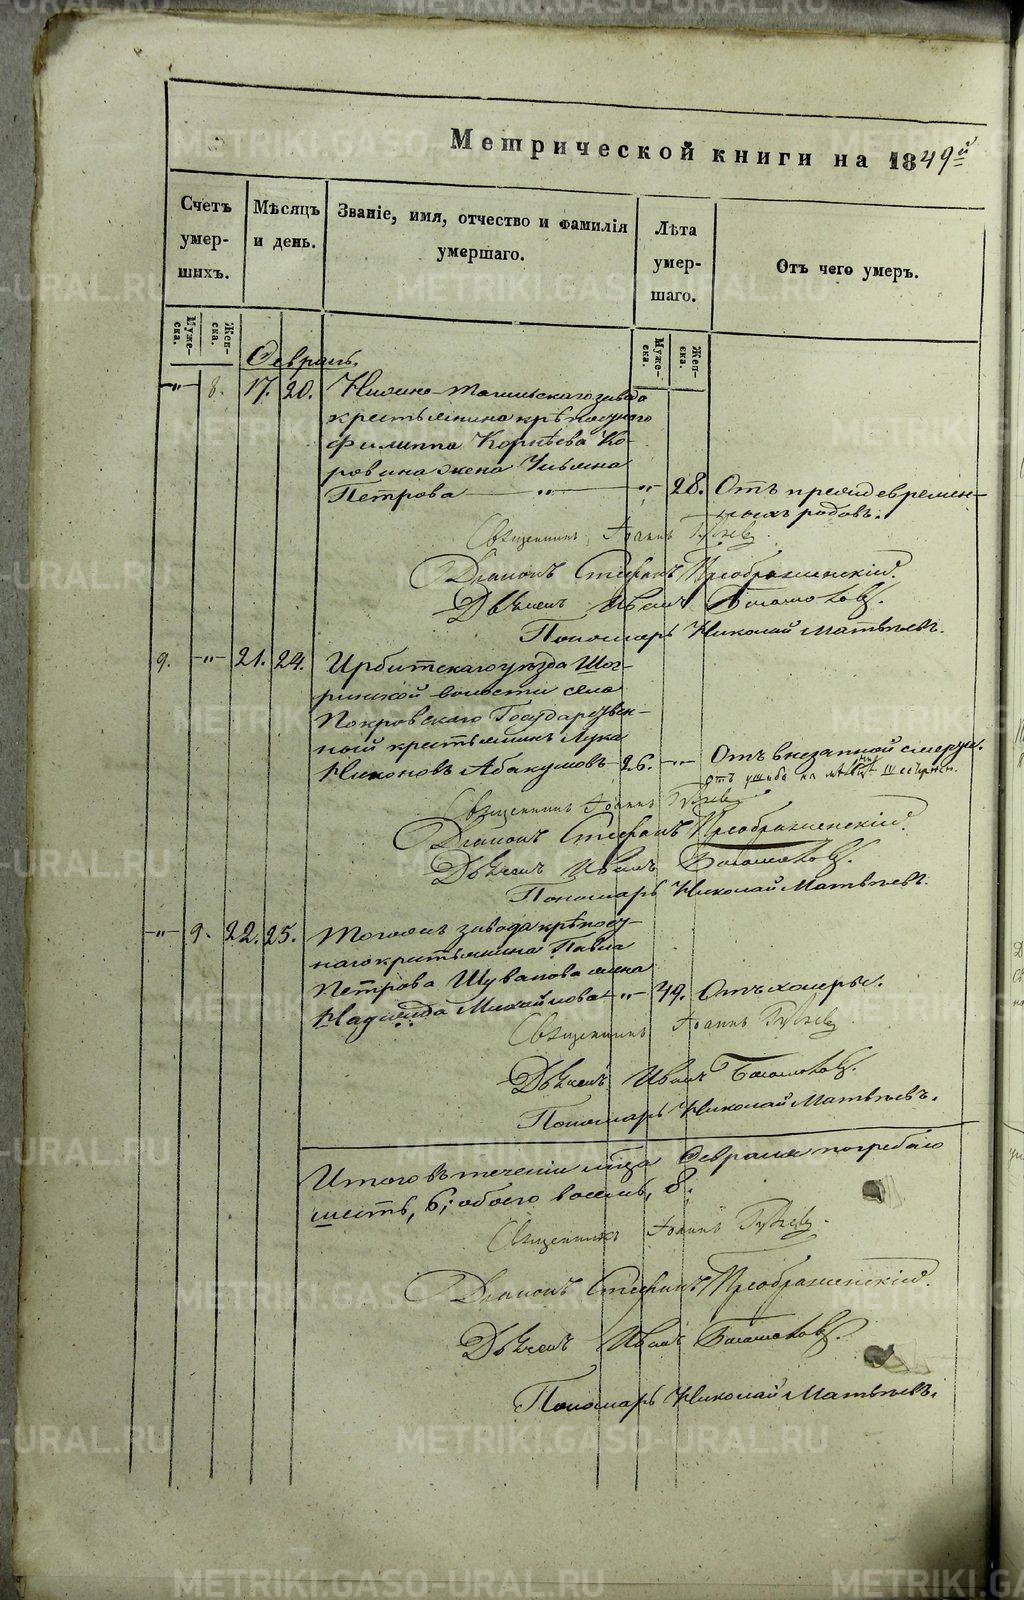 Метрической книги на 1849й
Счетъ умер-шихъ.
Мѣсяцъ и день.
Званіе, имя, отчество и фамилія умершаго.
Лѣта умер-шаго.
Отъ чего умеръ.
Муже-ска.
Жен-ска.
Муже-ска.
Жен-ска.
Февраль.
-"- 8. 17. 20. Нижне-Тагильскаго завода
крестьянина крѣпоснаго
Филиппа Корнѣева Ко-
ровина жена Ульяна
Петрова -"- -"- 28. Отъ преждевремен-
ныхъ родовъ.
Священникъ Іоаннъ
Діаконъ Стефанъ Преображенскій.
Дьячекъ Иванъ
Пономарь Николай Матвѣевъ.
9. -"- 21. 24. Ирбитскаго уѣзда Шог-
ринской волости села
Покровскаго Государствен-
ный крестьянинъ Лука
Никоновъ Абакумовъ 26. -"- Отъ внезапной смерти.
отъ ушиба на
Священникъ Іоаннъ
Діаконъ Стефанъ Преображенскій.
Дьячекъ Иванъ
Пономарь Николай Матвѣевъ.
-"- 9. 22. 25. Тогоже завода крѣпос-
наго крестьянина Павла
Петрова Шувалова жена
Надежда Михайлова -"- 49. Отъ холеры.
Священникъ Іоаннъ
Дьячекъ Иванъ
Пономарь Николай Матвѣевъ.
Итого въ теченіи мѣсяца Февраля погребено
шесть, 6; обоего восемь, 8.
Священникъ Іоаннъ
Діаконъ Стефанъ Преображенскій.
Дьячекъ Иванъ
Пономарь Николай Матвѣевъ.
METRIKI.GASO-URAL.RU